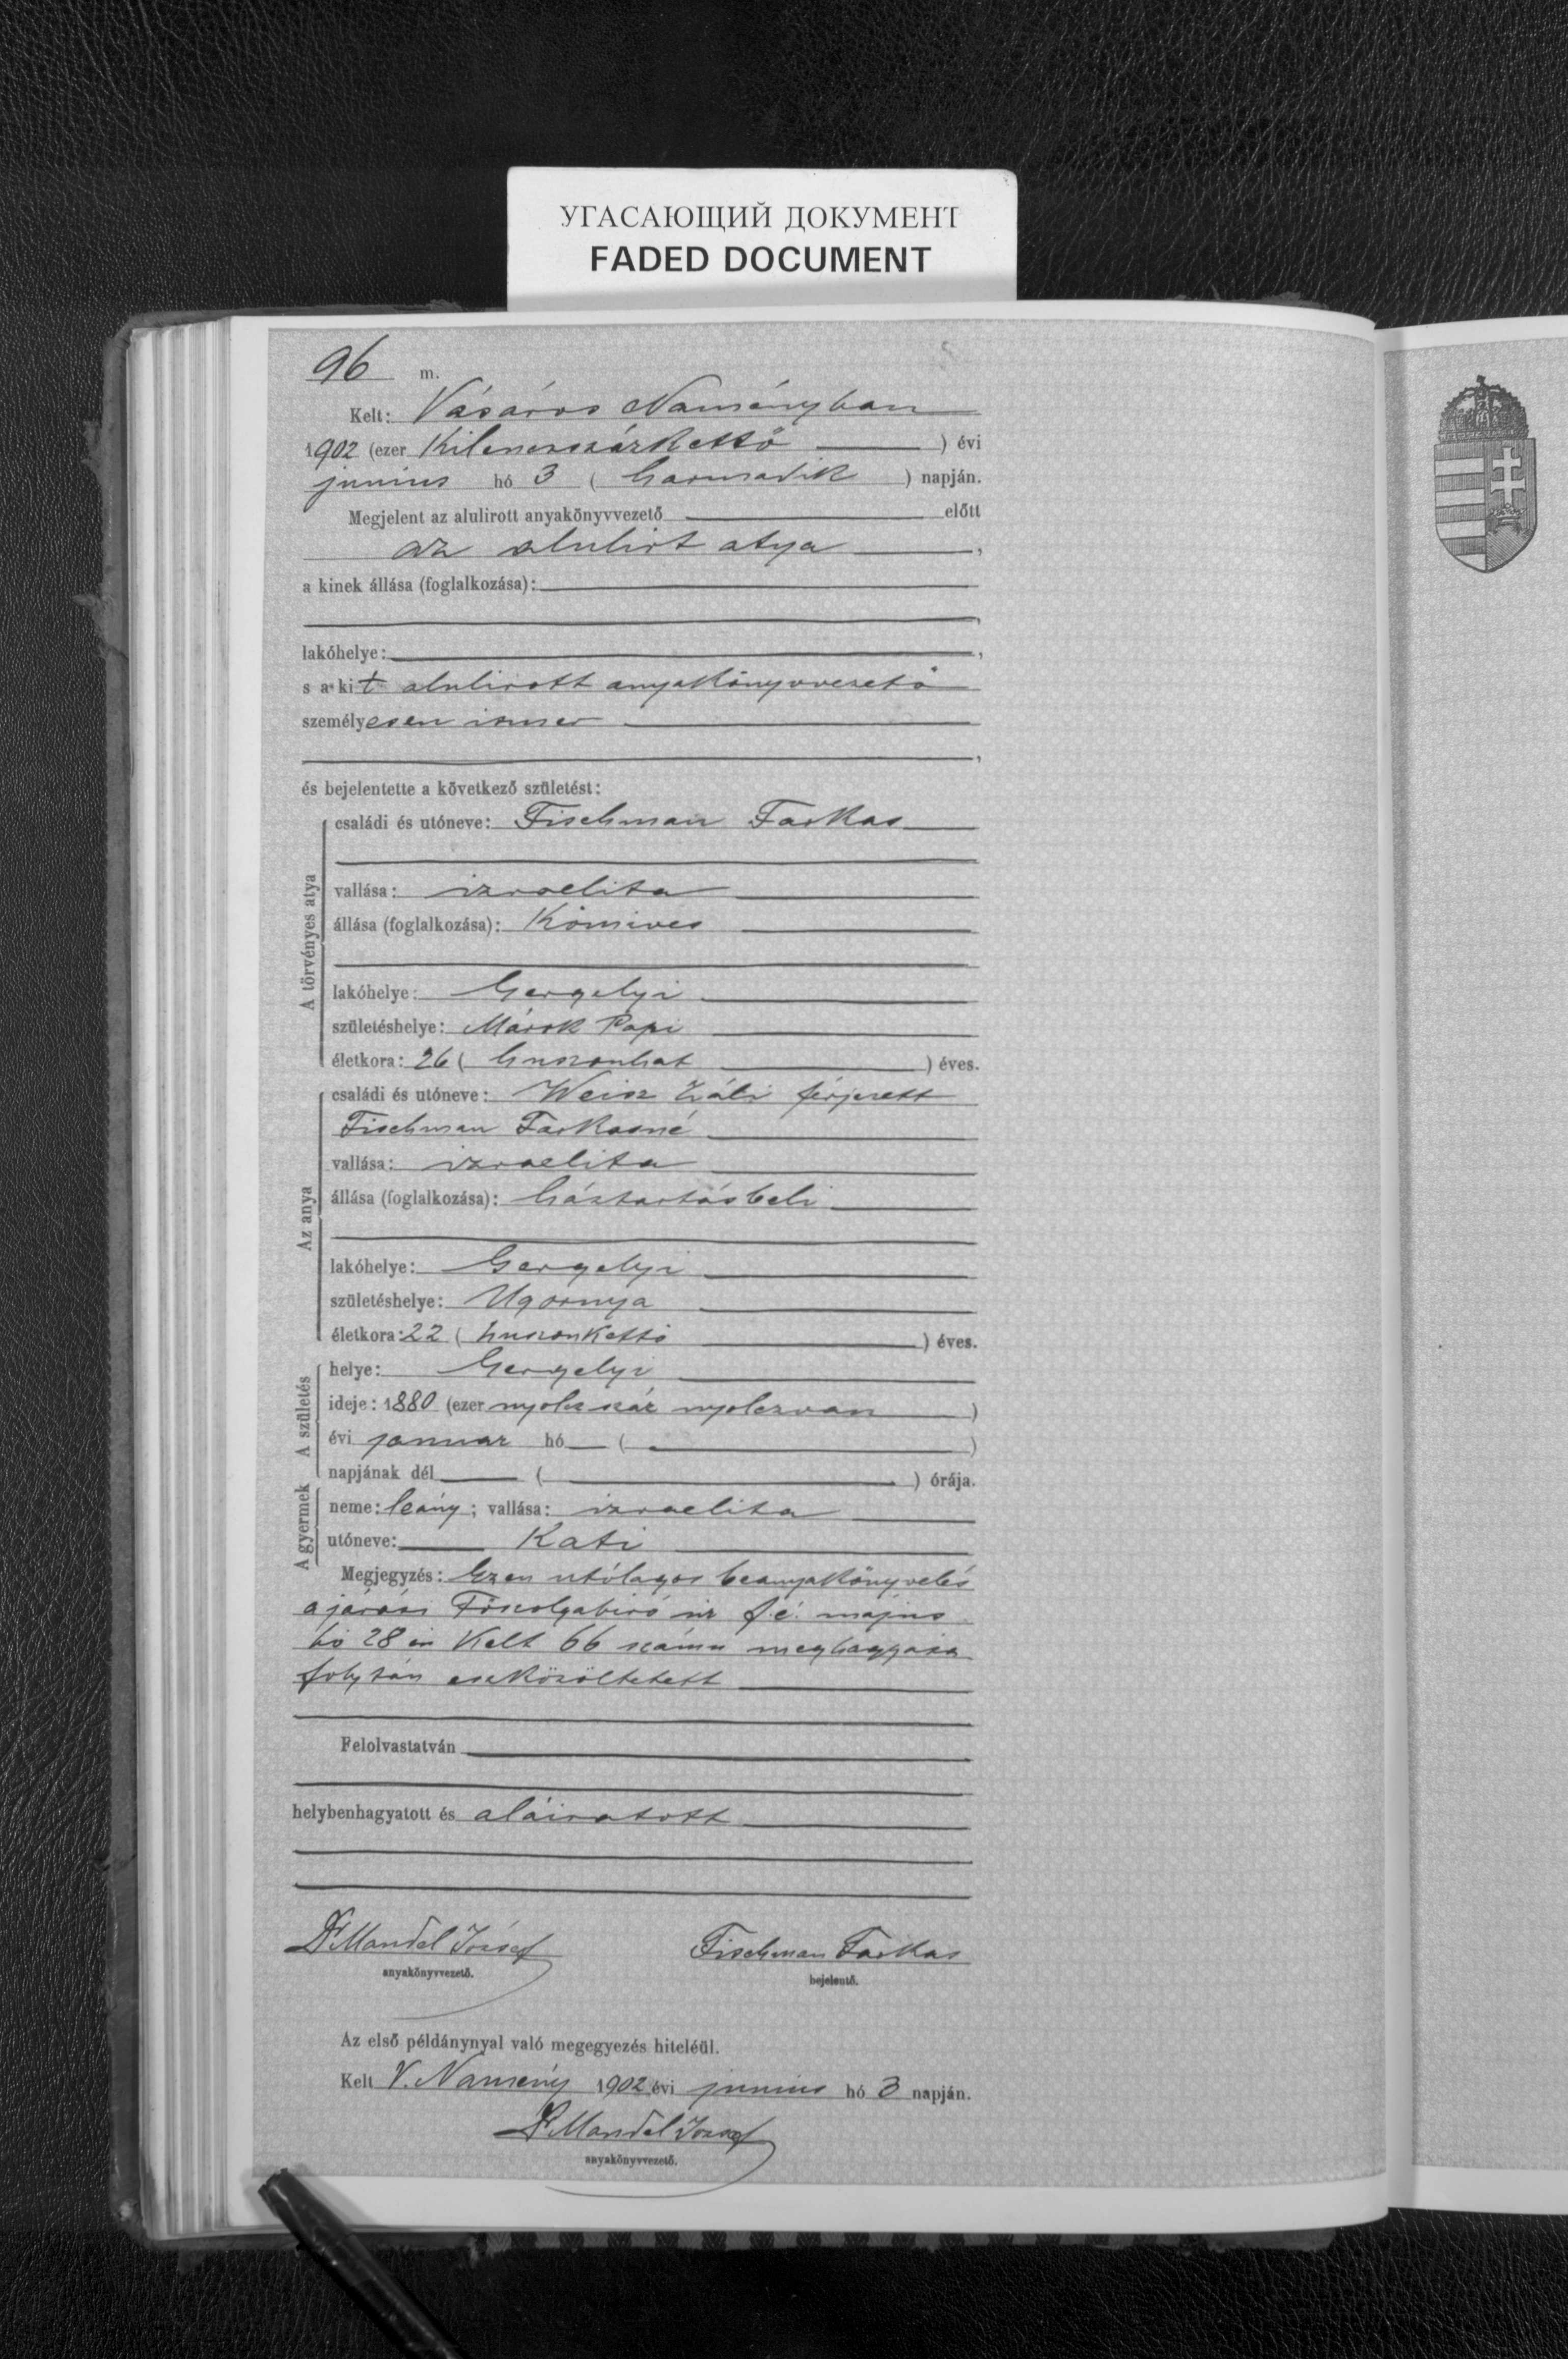 УГАСАЮЩИЙ ДОКУМЕНТ
FADED DOCUMENT
96 m.
Kelt: Vásáros Naményban
1902 (ezer Kilenczszázkettő ) évi
junius hó 3 ( harmadik ) napján.
Megjelent az alulirott anyakönyvvezető előtt
az alulirt atya ,
a kinek állása (foglalkozása):
,
lakóhelye: ,
s a kit alulirott anyakönyvvezető
személyesen ismer
,
és bejelentette a következő születést:
A törvényes atya
családi és utóneve: Fischman Farkas
vallása: izraelita
állása (foglalkozása): Kömives
lakóhelye: Gergelyi
születéshelye: Márok Papi
életkora: 26 ( huszonhat ) éves.
Az anya
családi és utóneve: Weisz Záli férjezett
Fischman Farkasné
vallása: izraelita
állása (foglalkozása): háztartásbeli
lakóhelye: Gergelyi
születéshelye: Ugornya
életkora: 22 ( huszonkettő ) éves.
A születés
helye: Gergelyi
ideje: 1880 (ezer nyolczszáz nyolczvan )
évi januar hó ( )
napjának dél ( ) órája.
A gyermek
neme: leány; vallása: izraelita
utóneve: Kati
Megjegyzés: Ezen utólagos beanyakönyvelés
a járási Főszolgabiró úr f. é. május
hó 28 án Kelt 66 számu meghagyása
folytán eszközöltetett
Felolvastatván
helybenhagyatott és aláiratott
Dr Mandel József
anyakönyvvezető.
Fischman Farkas
bejelentő.
Az első példánynyal való megegyezés hiteléül.
Kelt V. Namény 1902 évi junius hó 3 napján.
Dr Mandel József
anyakönyvvezető.